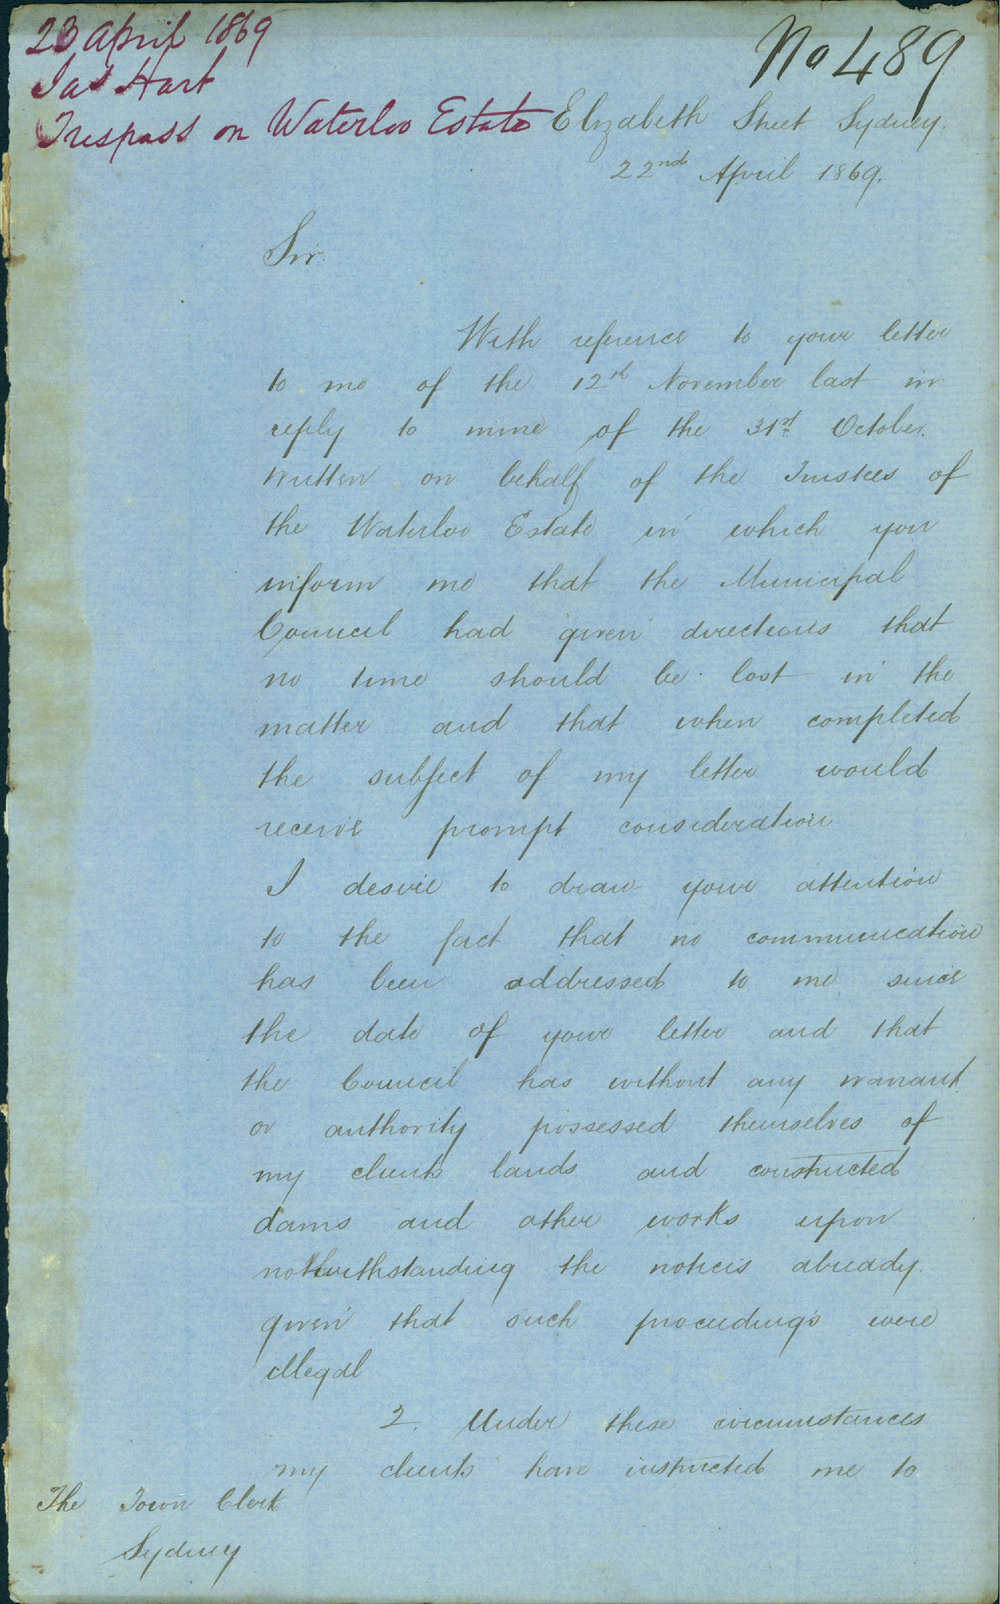 23 April 1869
Jas Hart
Trespass on Waterloo Estate
No 489
Elizabeth Street Sydney.
22nd April 1869.
Sir.
With reference to your letter
to me of the 12th November last in
reply to mine of the 31st October.
written on behalf of the Trustees of
the Waterloo Estate in which you
inform me that the Municipal
Council had given directions that
no time should be lost in the
matter and that when completed
the subject of my letter would
receive prompt consideration
I desire to draw your attention
to the fact that no communication
has been addressed to me since
the date of your letter and that
the Council has without any warrant
or authority possessed themselves of
my clients lands and constructed
dams and other works upon
notwithstanding the notices already
given that such proceedings were
illegal
2. Under these circumstances
my clients have instructed me to
The Town Clerk
Sydney